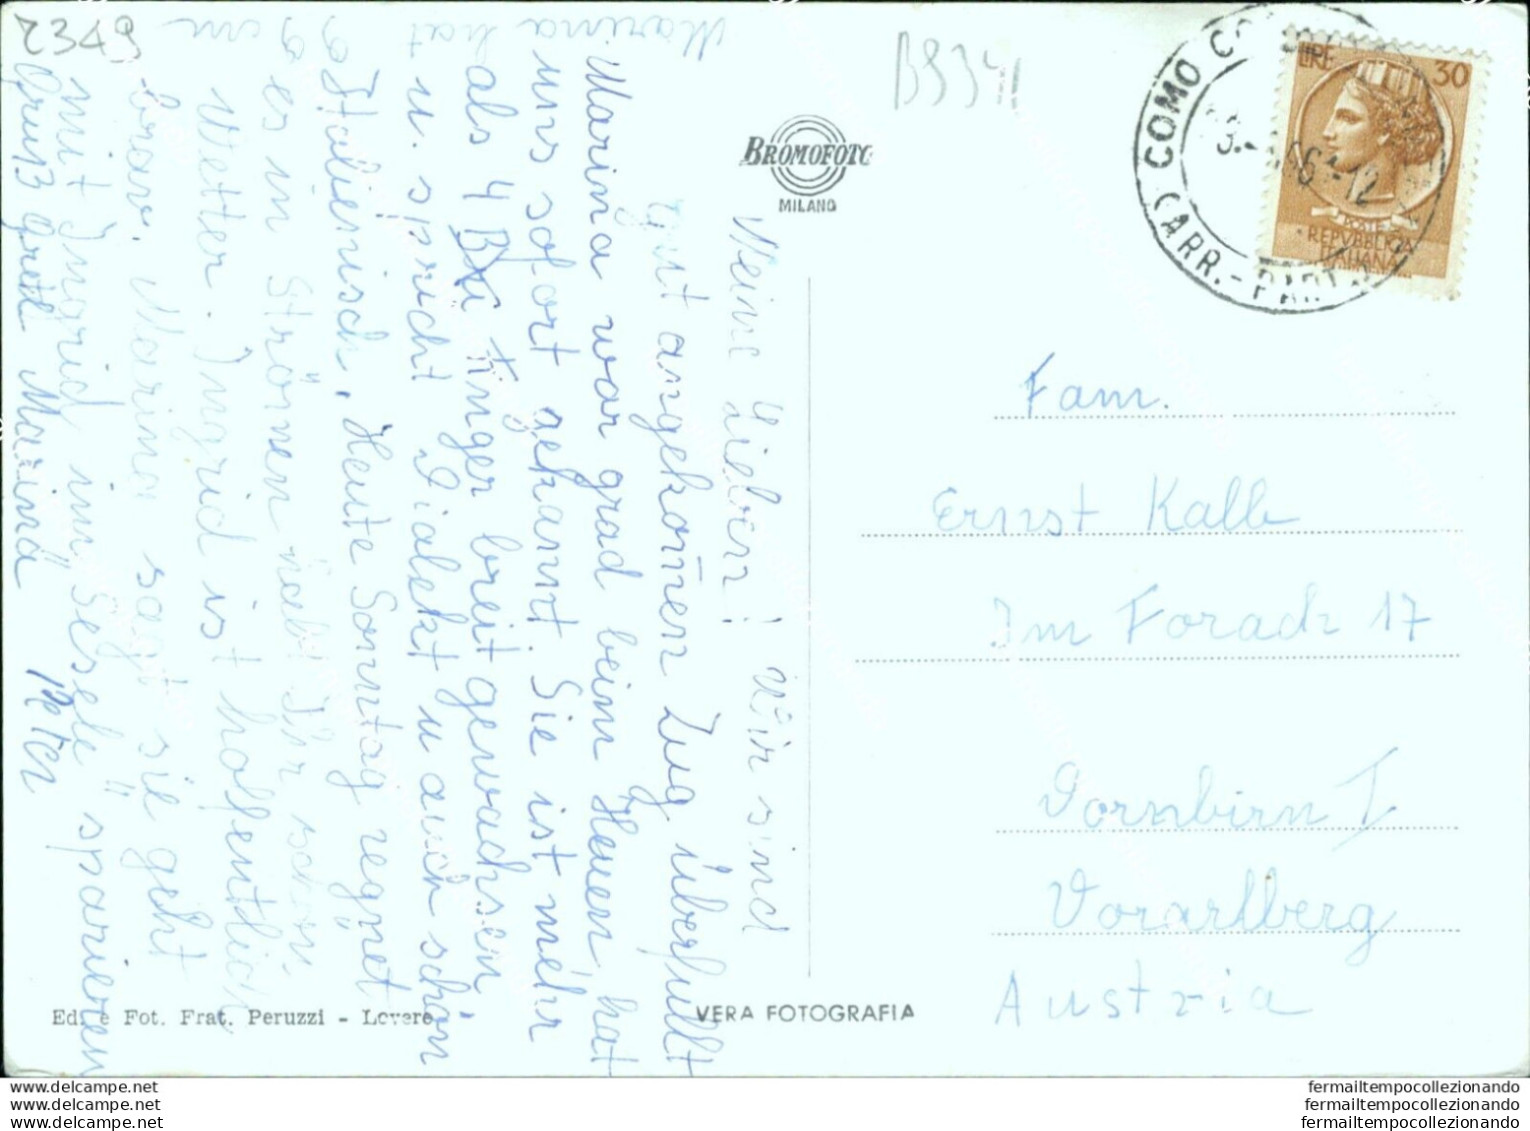 2349
B934
BROMOFOTO
MILANO
COMO C
CARR.-PART
LIRE 30
POSTE
REPVBBLICA
ITALIANA
Meine Lieben! Wir sind
gut angekom̄en Zug überfüllt
Marina war grad beim Heuen hat
uns sofort gekannt. Sie ist mehr
als 4 Finger breit gewachsen
u. spricht Dialekt u auch schon
Italienisch. Heute Sonntag regnet
es in Strömen habt Ihr schön
Wetter. Ingrid ist hoffentlich
brav. Marina sagt sie geht
mit Ingrid im Sesele spazieren
Gruß Gretl Marina Peter
Marina hat
Fam.
Ernst Kalb
Im Forach 17
Dornbirn I
Vorarlberg
Austria
Ed. e Fot. Frat. Peruzzi - Lovere
VERA FOTOGRAFIA
www.delcampe.net
www.delcampe.net
www.delcampe.net
fermailtempocollezionando
fermailtempocollezionando
fermailtempocollezionando